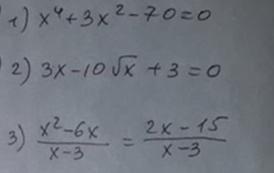 1) x⁴+3x²-70=0
2) 3x-10√x+3=0
3) (x²-6x)/(x-3) = (2x-15)/(x-3)